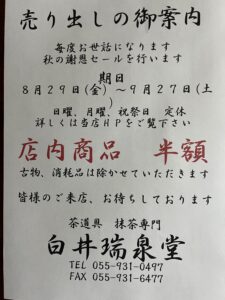 売り出しの御案内
毎度お世話になります
秋の謝恩セールを行います
期日
8月29日(金)~9月27日(土
)
日曜、月曜、祝祭日　定休
詳しくは当店HPをご覧下さい
店内商品　半額
古物、消耗品は除かせていただきます
皆様のご来店、お待ちしております
茶道具　抹茶専門
白井瑞泉堂
TEL 055-931-0497
FAX 055-931-6477